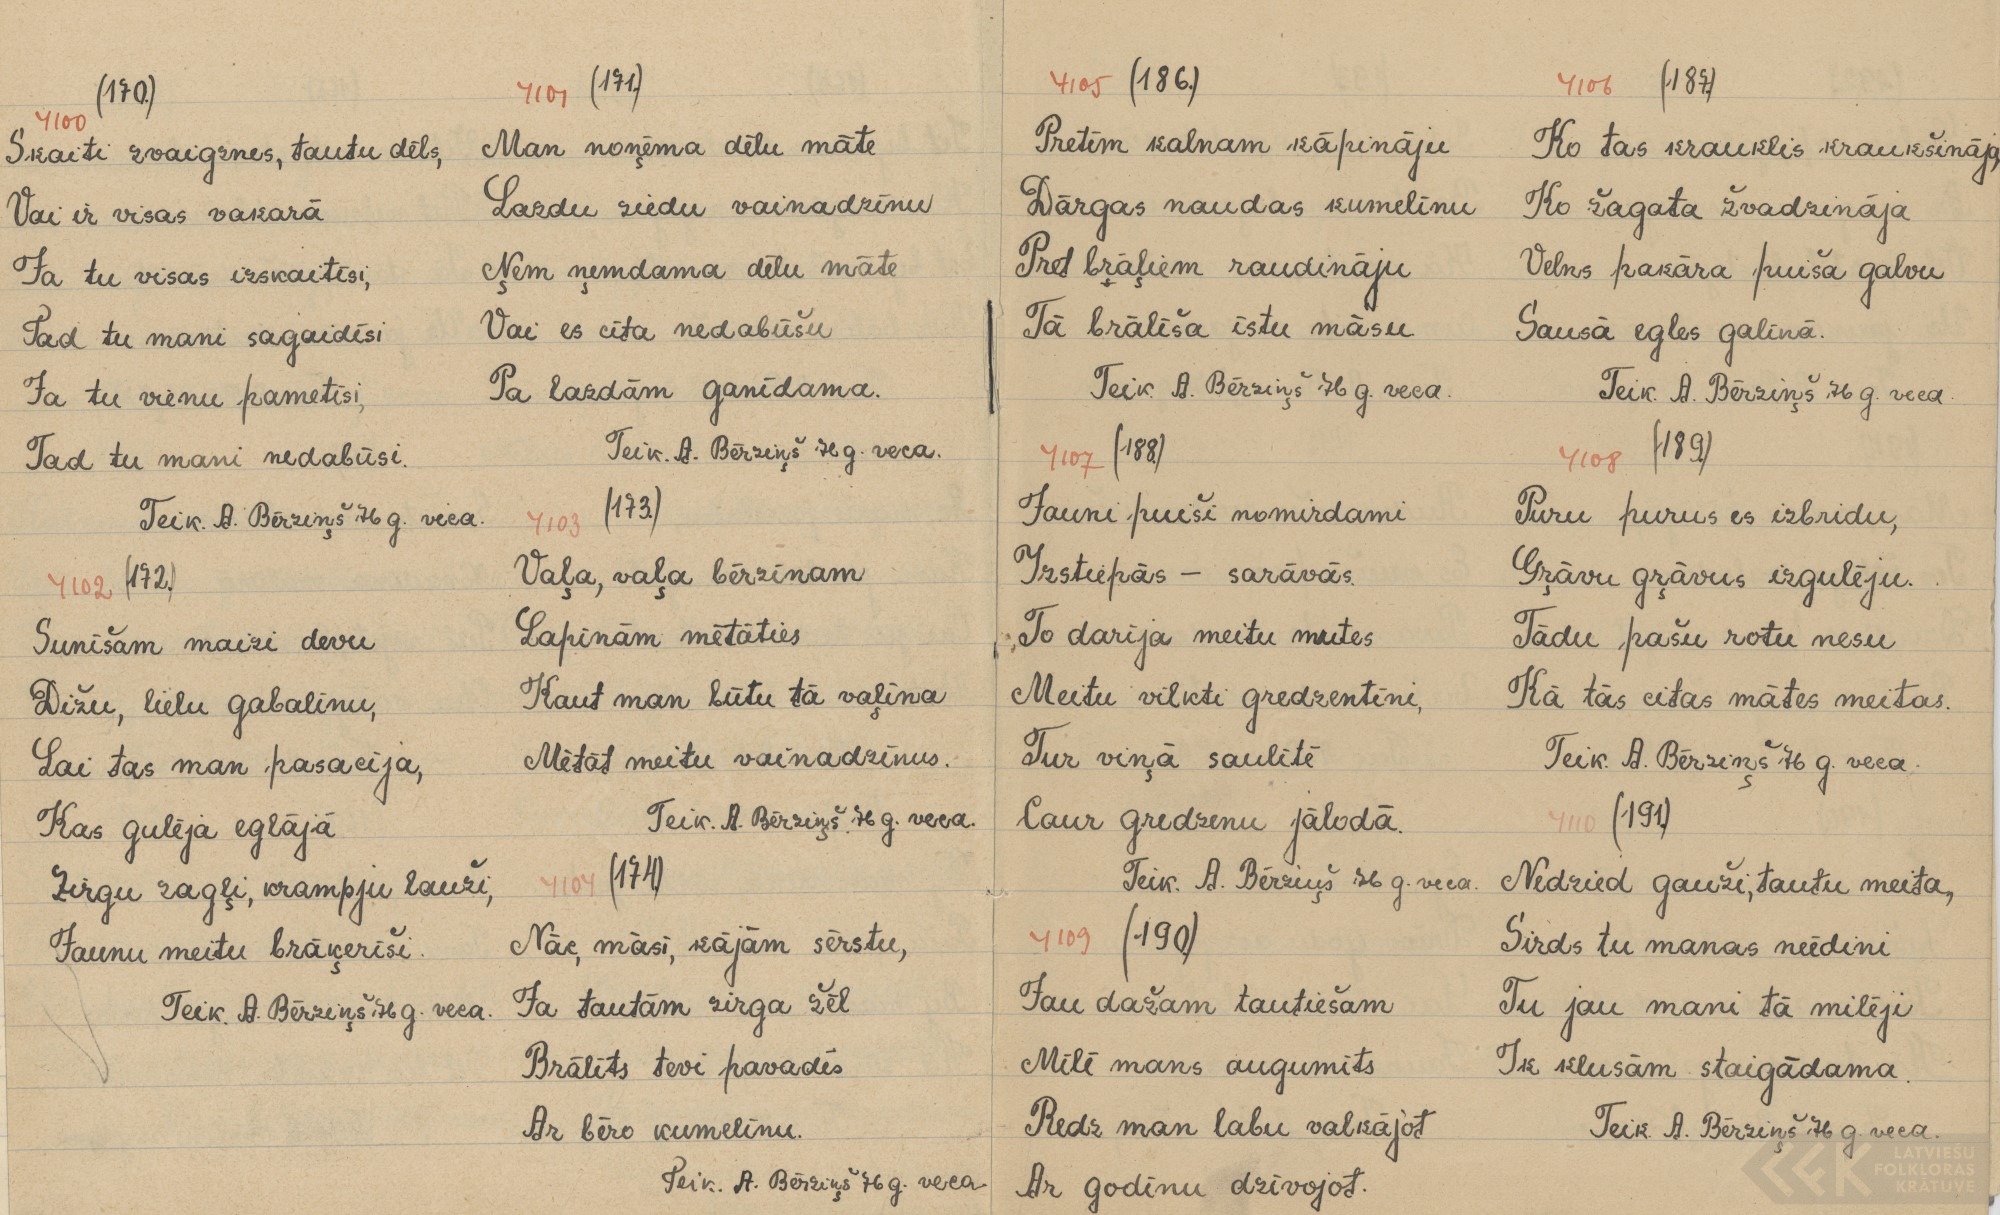 (170.)
4100
Skaiti zvaigznes, tautu dēls,
Vai ir visas vakarā
Ja tu visas izskaitīsi,
Tad tu mani sagaidīsi
Ja tu vienu pametīsi,
Tad tu mani nedabūsi.
Teik. A. Bērziņš 76 g. veca.
4102 (172.)
Sunīšam maizi devu
Dižu, lielu gabalinu,
Lai tas man pasacija,
Kas gulēja eglājā
Zirgu zagļi, krampju lauži,
Jaunu meitu brāķerīši.
Teik. A. Bērziņš 76 g. veca.
4101 (171.)
Man noņēma dēlu māte
Lazdu ziedu vainadzīnu
Ņem ņemdama dēlu māte
Vai es cita nedabūšu
Pa lazdām ganīdama.
Teik. A. Bērziņš 76 g. veca.
4103 (173.)
Vaļa, vaļa bērzīnam
Lapīnām mētāties
Kaut man būtu tā vaļīna
Mētāt meitu vainadzīnus.
Teik. A. Bērziņš 76 g. veca.
4104 (174)
Nāc, māsi, kājām sērstu,
Ja tautām zirga žēl
Brālits tevi pavadīs
Ar bēro kumelīnu.
Teik. A. Bērziņš 76 g. veca
4105 (186.)
Pretīm kalnam kāpināju
Dārgas naudas kumelīnu
Pret bŗāļiem raudināju
Tā brālīša īstu māsu
Teik. A. Bērziņš 76 g. veca.
4107 (188.)
Jauni puiši nomirdami
Izstiepās – sarāvās.
To darīja meitu mutes
Meitu vilkti gredzentīni,
Tur viņā saulītē
Caur gredzenu jālodā.
Teik. A. Bērziņš 76 g. veca.
4109 (190)
Jau dažam tautiešam
Mīlē mans augumīts
Redz man labu valkājot
Ar godīnu dzīvojot.
4106 (187)
Ko tas krauklis kraukšināja,
Ko žagata žvadzināja
Velns pakāra puiša galvu
Sausā egles galīnā.
Teik. A. Bērziņš 76 g. veca.
4108 (189)
Puru purus es izbridu,
Gŗāvu gŗāvus izgulēju.
Tādu pašu rotu nesu
Kā tās citas mātes meitas.
Teik. A. Bērziņš 76 g. veca.
4110 (191)
Nedzied gauži, tautu meita,
Sirds tu manas neēdini
Tu jau mani tā milēji
Ik klusām staigādama.
Teik. A. Bērziņš 76 g. veca.
LATVIEŠU
FOLKLORAS
KRĀTUVE